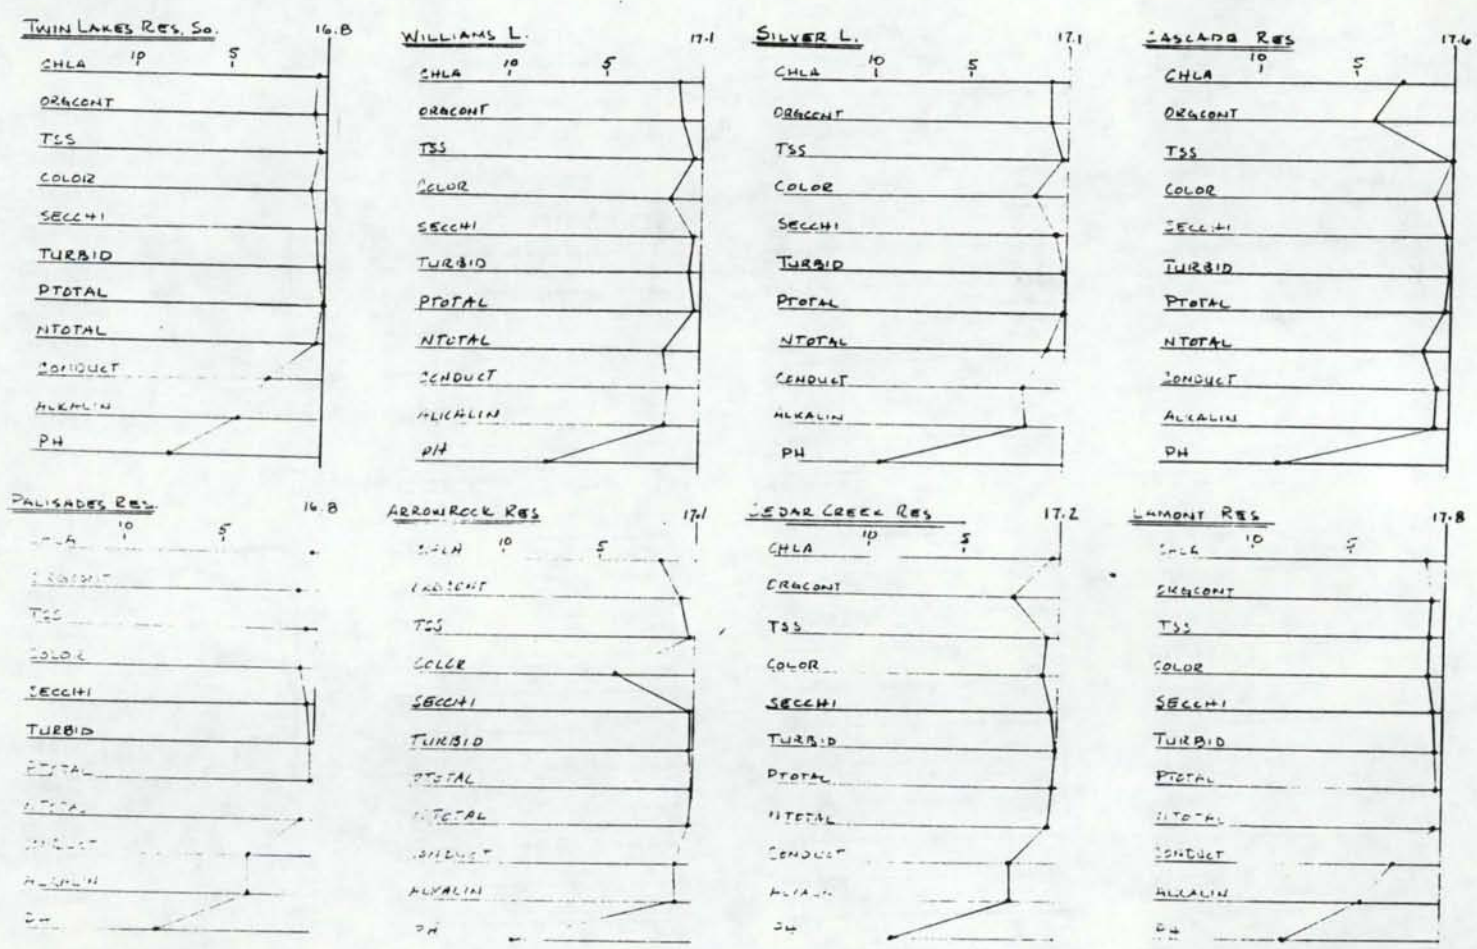 TWIN LAKES RES. SO. 16.8
10 5
CHLA
ORGCONT
TSS
COLOR
SECCHI
TURBID
PTOTAL
NTOTAL
CONDUCT
ALKALIN
PH
WILLIAMS L. 17.1
10 5
CHLA
ORGCONT
TSS
COLOR
SECCHI
TURBID
PTOTAL
NTOTAL
CONDUCT
ALKALIN
PH
SILVER L. 17.1
10 5
CHLA
ORGCONT
TSS
COLOR
SECCHI
TURBID
PTOTAL
NTOTAL
CONDUCT
ALKALIN
PH
CASCADE RES 17.6
10 5
CHLA
ORGCONT
TSS
COLOR
SECCHI
TURBID
PTOTAL
NTOTAL
CONDUCT
ALKALIN
PH
PALISADES RES. 16.8
10 5
CHLA
ORGCONT
TSS
COLOR
SECCHI
TURBID
PTOTAL
NTOTAL
CONDUCT
ALKALIN
PH
ARROWROCK RES 17.1
10 5
CHLA
ORGCONT
TSS
COLOR
SECCHI
TURBID
PTOTAL
NTOTAL
CONDUCT
ALKALIN
PH
CEDAR CREEK RES 17.2
10 5
CHLA
ORGCONT
TSS
COLOR
SECCHI
TURBID
PTOTAL
NTOTAL
CONDUCT
ALKALIN
PH
LAMONT RES 17.8
10 5
CHLA
ORGCONT
TSS
COLOR
SECCHI
TURBID
PTOTAL
NTOTAL
CONDUCT
ALKALIN
PH